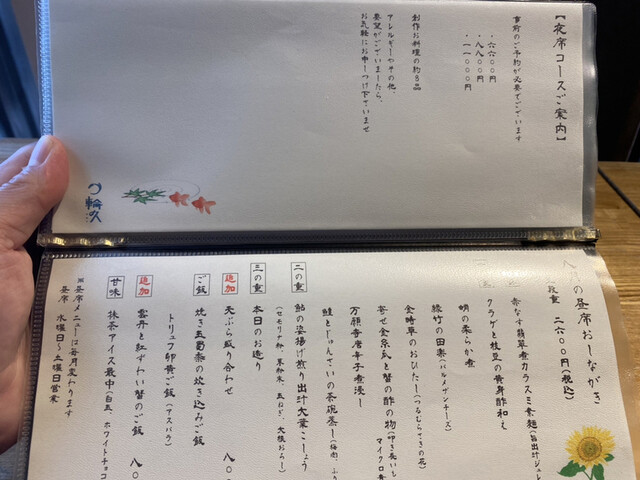 【夜席コースご案内】
事前のご予約が必要でございます
・六六００円
・八八００円
・一一０００円
創作お料理の約９品
アレルギーやその他、
要望がございましたら、
お気軽にお申しつけ下ていませ
八月の昼席おしながき
段重 二六００円（税込）
赤なす翡翠煮カラスミ素麺（旨出汁ジュレ
クラゲと枝豆の黄身酢和え
蛸の柔らか煮
緑竹の田楽（パルメザンチーズ）
金時草のおひたし（つるむらさきの花）
寄せ金糸瓜と蟹の酢の物（叩き長いも
マイクロ
万願寺唐辛子煮浸し
鮭とじゅんさいの茶碗蒸し（梅肉、ぶ
二の重
鮎の姿揚げ煎り出汁大葉こしょう
（セモリナ粉、黒粉米、玉ねぎ、大根おろし）
三の重
本日のお造り
追加
天ぷら盛り合わせ 八〇
ご飯
焼き玉蜀黍の炊き込みご飯
トリュフ卵黄ご飯（アスパラ）
追加
雲丹と紅ずわい蟹のご飯 八〇
甘味
抹茶アイス最中（白玉、ホワイトチョコ
※昼席メニューは毎月変わります
昼席 水曜日～土曜日営業